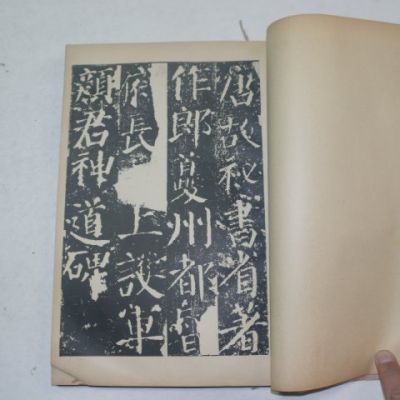 唐故秘書省著
作郎夔州都督
府長 上護軍
顏君神道碑